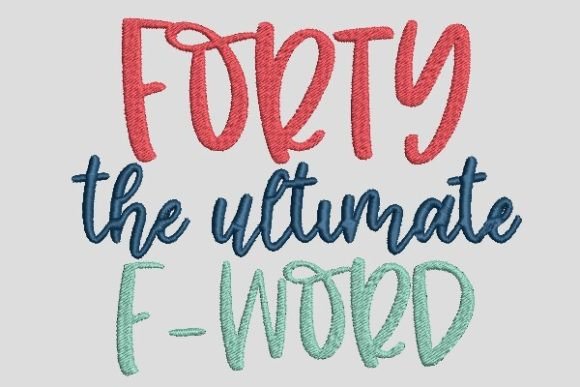 FORTY
the ultimate
F-WORD